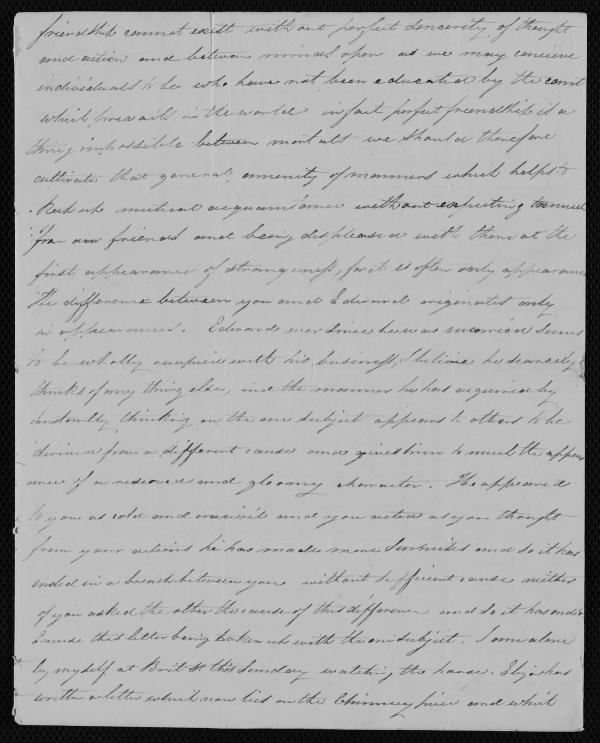 friendship cannot exist without perfect sincerity of thought
and action and between minds open as we may conceive
individuals to be who have not been educated by the cant
which prevails in the world in fact perfect friendship is a
thing impossible between mortals we should therefore
cultivate that general amenity of manners which helps to
keep up mutual acquaintance without expecting too much
from our friends and being displeased with them at the
first appearance of strangeness, for it is often only appearance
The difference between you and Edward originates only
in appearances. Edward ever since he was married seems
to be wholly occupied with his business, I believe he scarcely
thinks of any thing else, and the manner he has acquired by
constantly thinking on the one subject appears to others to be
derived from a different cause and gives him too much the appear
ance of a reserved and gloomy character. He appeared
to you as cold and uncivil and you acted as you thought
from your actions he has made more surmises and so it has
ended in a breach between you without sufficient cause neither
of you asked the other the cause of this difference and so it has ended
Excuse this letter being taken up with the one subject. I am alone
by myself at Brit St this Sunday watching the house. Eliza has
written a letter which now lies on the Chimney piece and which